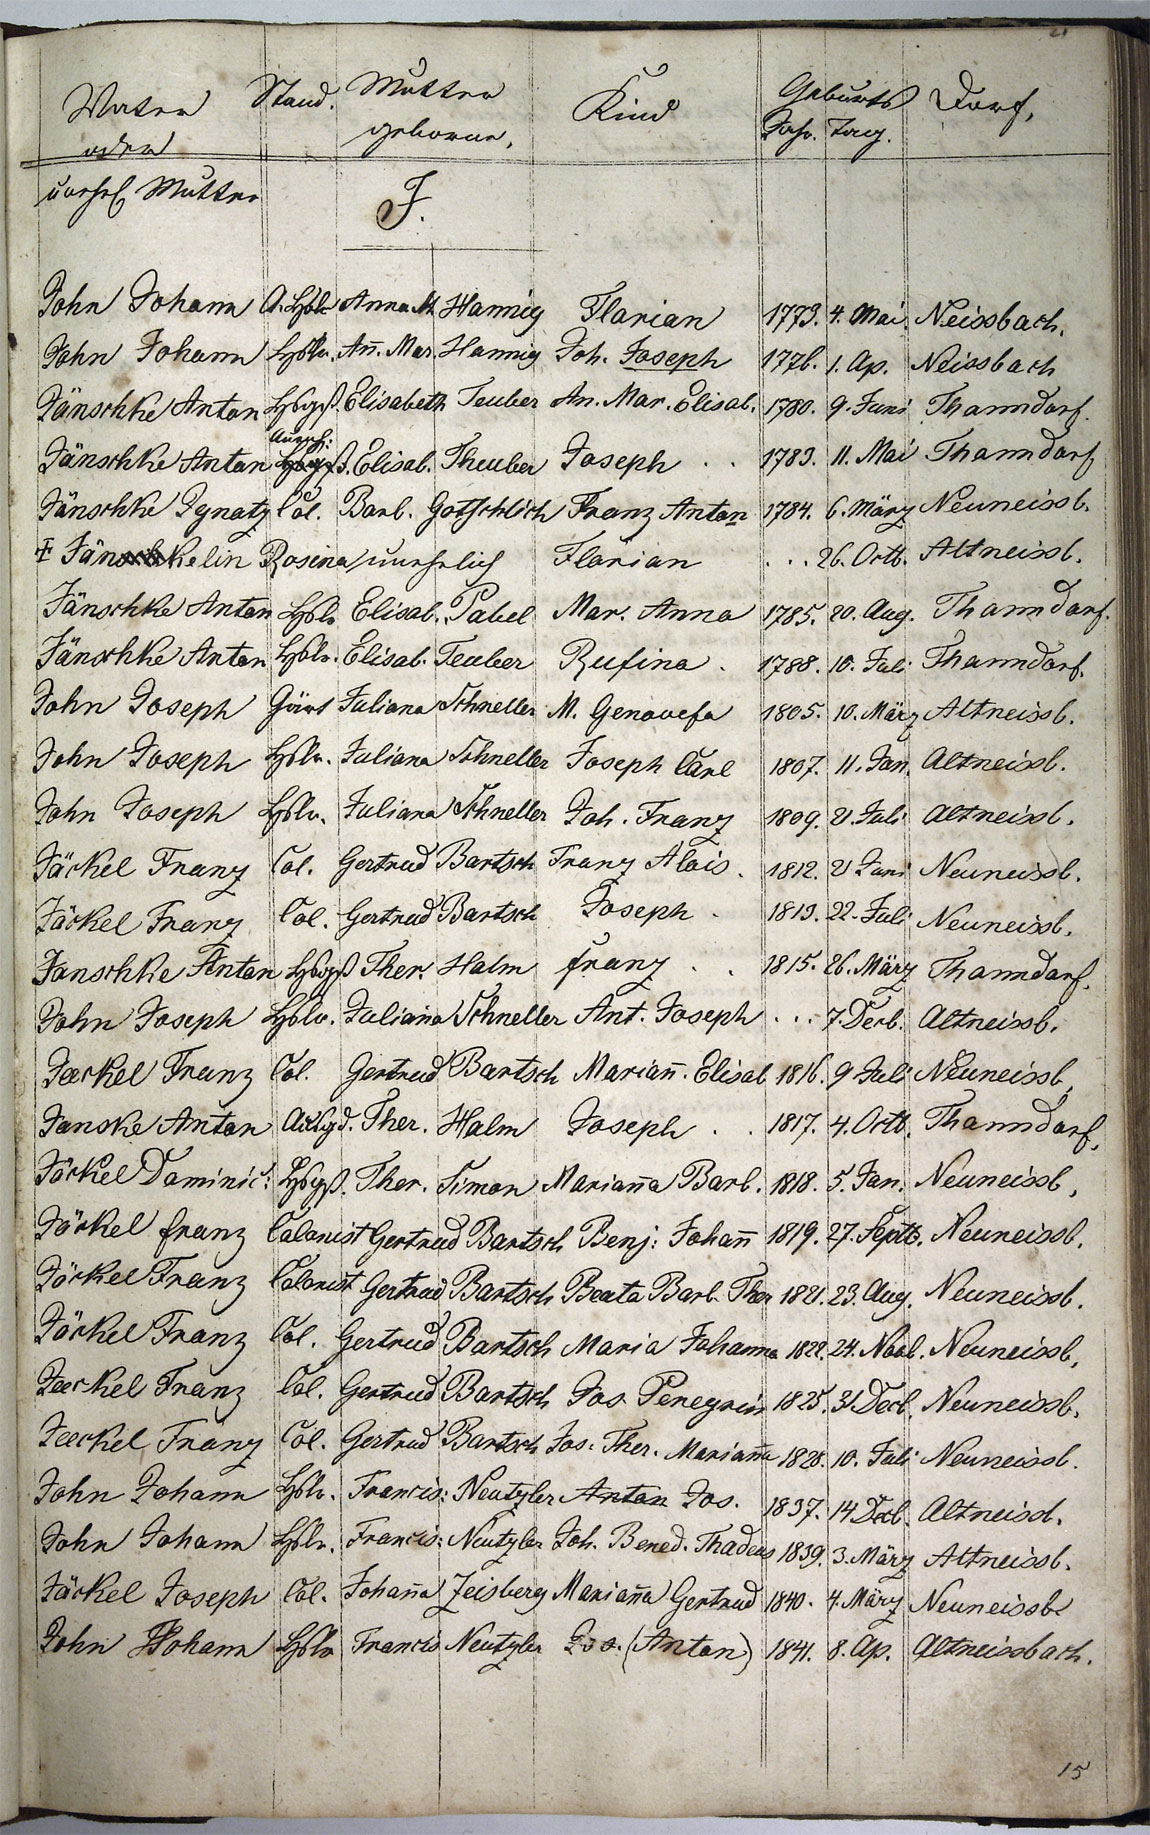 Vater Stand. Mutter Kind Geburts Dorf,
oder geborne, Jahr. Tag.
unehel Mutter
J.
John Johann A. Hslr Anna M. Hannig Florian 1773. 4. Mai. Neissbach.
John Johann Hslr. Añ. Mar. Hannig Joh. Joseph 1776. 1. Ap. Neissbach
Jänschke Anton Hsgß Elisabeth Teuber An. Mar. Elisab. 1780. 9. Juni Thanndorf.
Jänschke Anton Elisab. Theuber Joseph . . 1783. 11. Mai Thanndorf
Jänschke Ignatz Col. Barb. Gottschlich Franz Anton 1784. 6. März Neuneissb.
Jänschkelin Rosina unehelich Florian . . . 26. Octb. Altneissb.
Jänschke Anton Hslr Elisab. Pabel Mar. Anna 1785. 20. Aug. Thanndorf.
Jänschke Anton Hslr. Elisab. Teuber Rufina . 1788. 10. Juli Thanndorf.
John Joseph Gärt Juliana Schneller M. Genovefa 1805. 10. März Altneissb.
John Joseph Hslr. Juliana Schneller Joseph Carl 1807. 11. Jan. Altneissb.
John Joseph Hslr. Juliana Schneller Joh. Franz 1809. 21 Juli Altneissb.
Jäckel Franz Col. Gertrud Bartsch Franz Alois. 1812. 21 Juni Neuneissb.
Jäckel Franz Col. Gertrud Bartsch Joseph . 1813. 22. Juli Neuneissb.
Janschke Anton Hsgß Ther. Halm franz . . 1815. 26. März Thanndorf.
John Joseph Hslr. Juliana Schneller Ant. Joseph . . . 7. Decb. Altneissb.
Jaeckel Franz Col. Gertrud Bartsch Mariañ. Elisab 1816. 9 Juli Neuneissb,
Janske Anton Ther. Halm Joseph . . 1817. 4. Octb. Thanndorf,
Jäckel Dominic: Hsgß. Ther. Simon Mariaña Barb. 1818. 5. Jan. Neuneissb,
Jäckel franz Colonist Gertrud Bartsch Benj: Johañ 1819. 27. Septb. Neuneissb.
Jäckel Franz Colonist Gertrud Bartsch Beata Barb. Ther 1821. 23. Aug. Neuneissb.
Jäckel Franz Col. Gertrud Bartsch Maria Johanna 1822. 24. Novb. Neuneissb,
Jaeckel Franz Col. Gertrud Bartsch Jos Peregrin 1825. 31 Decb. Neuneissb.
Jaeckel Franz Col. Gertrud Bartsch Jos: Ther. Mariaña 1828. 10. Juli Neuneissb.
John Johann Hslr. Francis: Neutzler Anton Jos. 1837. 14 Decb. Altneissb.
John Johann Hslr. Francis: Neutzler Joh. Bened. Thadeus 1839. 3. März Altneissb.
Jäckel Joseph Col. Johaña Zeisberg Mariaña Gertrud 1840. 4. März Neuneissb
John Johann Hslr Francis Neutzler Jos. (Anton) 1841. 8. Ap. Altneissbach.
15